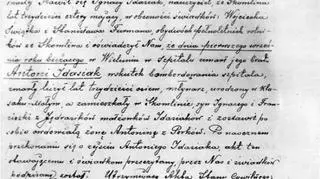 Stawił się Ignacy Idasiak, nauczyciel, ze Skomlina
lat trzydzieści cztery mający, w obecności świadków: Wojciecha
i Stanisława Furmana, obydwóch pełnoletnich rolni-
ków ze Skomlina i oświadczył Nam, że dnia pierwszego wrześ-
nia roku bieżącego w Wieluniu w Szpitalu umarł jego brat
Antoni Idasiak wskutek bombardowania szpitala,
zmarły liczył lat trzydzieści osiem, młynarz, urodzony w
Młynie a zamieszkały w Skomlinie, syn Ignacego i Fran-
ciszki z Jędrasików małżonków Idasiaków i zostawił po
sobie owdowiałą żonę Antoninę z Perków. Po naocznem
przekonaniu się o zejściu Antoniego Idasiaka, akt ten
stawającemu i świadkom przeczytany, przez Nas i świadków
podpisany został. Utrzymujący Akta Stanu Cywilnego